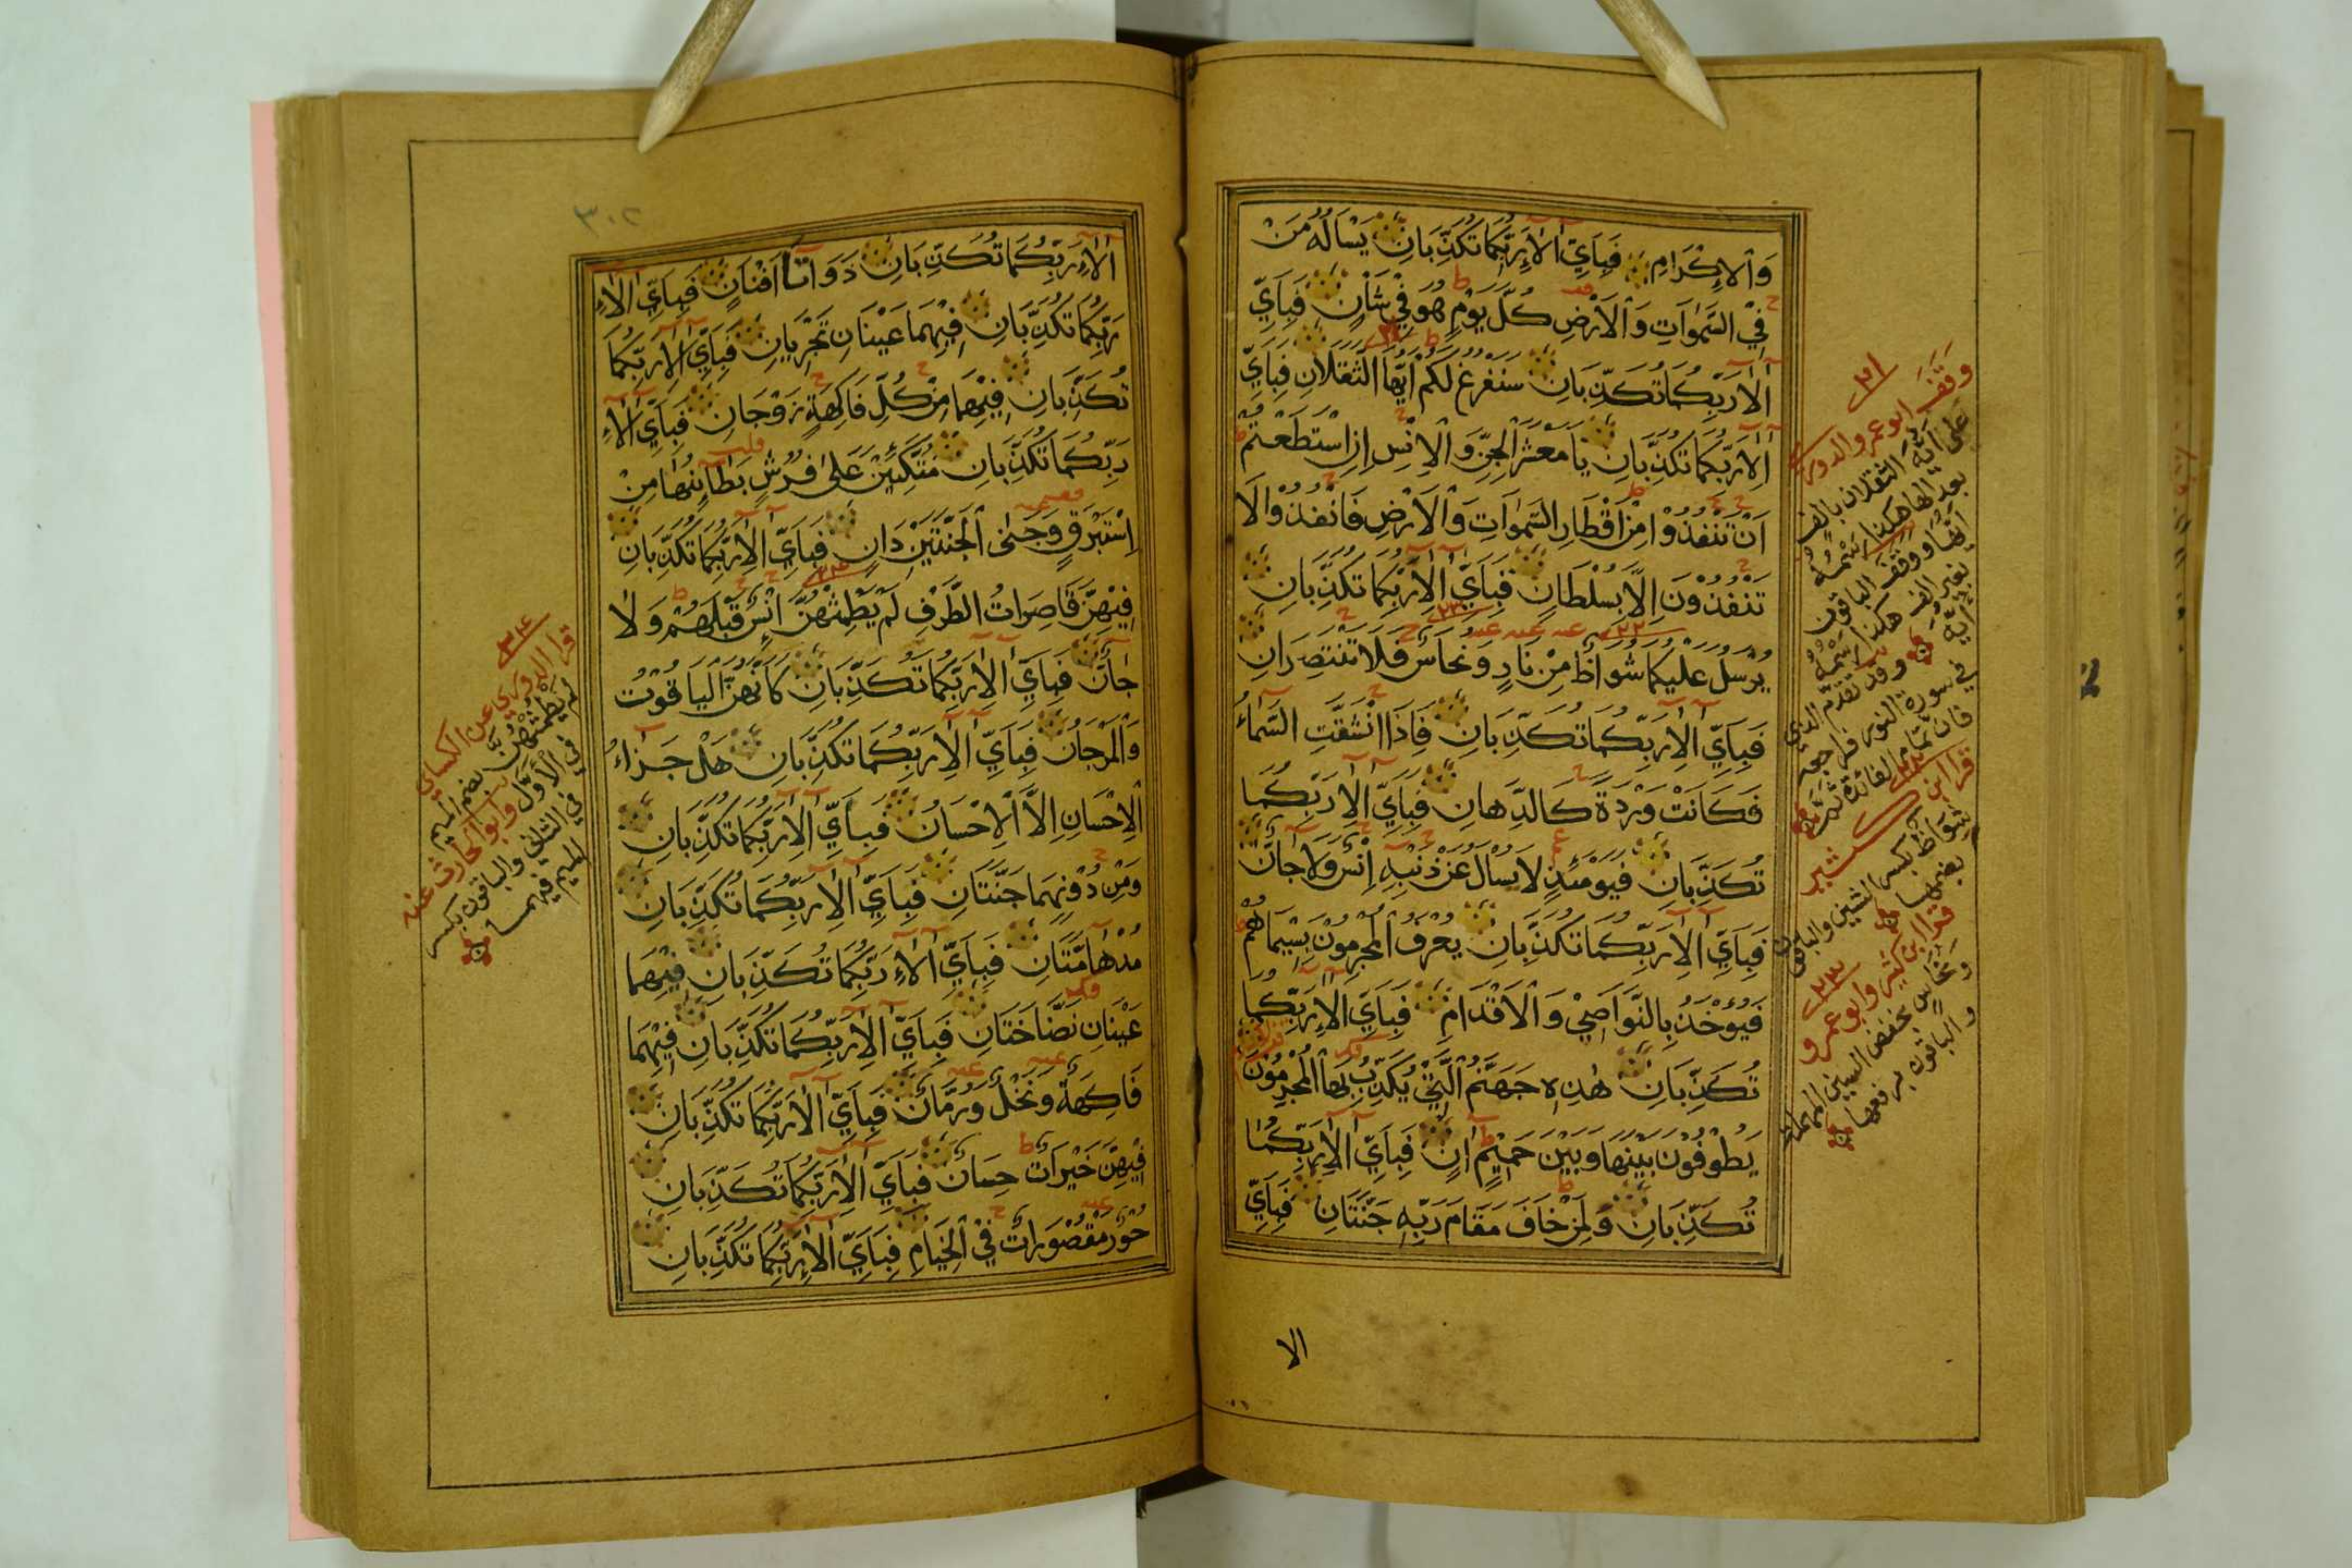 وَالْاِكْرَامِ فَبِاَيِّ اٰلَاۤءِ رَبِّكُمَا تُكَذِّبَانِ يَسْاَلُهُ مَنْ
فِي السَّمٰوَاتِ وَالْاَرْضِ كُلَّ يَوْمٍ هُوَ فِي شَاْنٍ فَبِاَيِّ
اٰلَاۤءِ رَبِّكُمَا تُكَذِّبَانِ سَنَفْرُغُ لَكُمْ اَيُّهَا الثَّقَلَانِ فَبِاَيِّ
اٰلَاۤءِ رَبِّكُمَا تُكَذِّبَانِ يَا مَعْشَرَ الْجِنِّ وَالْاِنْسِ اِنِ اسْتَطَعْتُمْ
اَنْ تَنْفُذُوْا مِنْ اَقْطَارِ السَّمٰوَاتِ وَالْاَرْضِ فَانْفُذُوْا لَا
تَنْفُذُوْنَ اِلَّا بِسُلْطَانٍ فَبِاَيِّ اٰلَاۤءِ رَبِّكُمَا تُكَذِّبَانِ
يُرْسَلُ عَلَيْكُمَا شُوَاظٌ مِنْ نَارٍ وَنُحَاسٌ فَلَا تَنْتَصِرَانِ
فَبِاَيِّ اٰلَاۤءِ رَبِّكُمَا تُكَذِّبَانِ فَاِذَا انْشَقَّتِ السَّمَاۤءُ
فَكَانَتْ وَرْدَةً كَالدِّهَانِ فَبِاَيِّ اٰلَاۤءِ رَبِّكُمَا
تُكَذِّبَانِ فَيَوْمَئِذٍ لَا يُسْاَلُ عَنْ ذَنْبِهِ اِنْسٌ وَلَا جَاۤنٌّ
فَبِاَيِّ اٰلَاۤءِ رَبِّكُمَا تُكَذِّبَانِ يُعْرَفُ الْمُجْرِمُوْنَ بِسِيْمَاهُمْ
فَيُؤْخَذُ بِالنَّوَاصِيْ وَالْاَقْدَامِ فَبِاَيِّ اٰلَاۤءِ رَبِّكُمَا
تُكَذِّبَانِ هٰذِهِ جَهَنَّمُ الَّتِيْ يُكَذِّبُ بِهَا الْمُجْرِمُوْنَ
يَطُوْفُوْنَ بَيْنَهَا وَبَيْنَ حَمِيْمٍ اٰنٍ فَبِاَيِّ اٰلَاۤءِ رَبِّكُمَا
تُكَذِّبَانِ وَلِمَنْ خَافَ مَقَامَ رَبِّهِ جَنَّتَانِ فَبِاَيِّ
الا
٢١
وَقَفَ ابو عمرو والدوري
على ايُّه الثقلان بالف
بعد الها هكذا رسمه
ايُّها ووقف الباقون
بغير الف هكذا رسمه
ايُّه وقد تقدم الذي
في سورة النور فراجعه
فان تمام الفائدة ثمَّ
قرا ابن كثير
شِواظ بكسر الشين والباقون
بضمها
٢٣
قرا ابن كثير وابو عمرو
ونحاسٍ بخفض السين المهملة
والباقون برفعها
٣٠٢
اٰلَاۤءِ رَبِّكُمَا تُكَذِّبَانِ ذَوَاتَاۤ اَفْنَانٍ فَبِاَيِّ اٰلَاۤءِ
رَبِّكُمَا تُكَذِّبَانِ فِيْهِمَا عَيْنَانِ تَجْرِيَانِ فَبِاَيِّ اٰلَاۤءِ رَبِّكُمَا
تُكَذِّبَانِ فِيْهِمَا مِنْ كُلِّ فَاكِهَةٍ زَوْجَانِ فَبِاَيِّ اٰلَاۤءِ
رَبِّكُمَا تُكَذِّبَانِ مُتَّكِئِيْنَ عَلٰى فُرُشٍ بَطَاۤئِنُهَا مِنْ
اِسْتَبْرَقٍ وَجَنَى الْجَنَّتَيْنِ دَانٍ فَبِاَيِّ اٰلَاۤءِ رَبِّكُمَا تُكَذِّبَانِ
فِيْهِنَّ قَاصِرَاتُ الطَّرْفِ لَمْ يَطْمِثْهُنَّ اِنْسٌ قَبْلَهُمْ وَلَا
جَاۤنٌّ فَبِاَيِّ اٰلَاۤءِ رَبِّكُمَا تُكَذِّبَانِ كَاَنَّهُنَّ الْيَاقُوْتُ
وَالْمَرْجَانُ فَبِاَيِّ اٰلَاۤءِ رَبِّكُمَا تُكَذِّبَانِ هَلْ جَزَاۤءُ
الْاِحْسَانِ اِلَّا الْاِحْسَانُ فَبِاَيِّ اٰلَاۤءِ رَبِّكُمَا تُكَذِّبَانِ
وَمِنْ دُوْنِهِمَا جَنَّتَانِ فَبِاَيِّ اٰلَاۤءِ رَبِّكُمَا تُكَذِّبَانِ
مُدْهَاۤمَّتَانِ فَبِاَيِّ اٰلَاۤءِ رَبِّكُمَا تُكَذِّبَانِ فِيْهِمَا
عَيْنَانِ نَضَّاخَتَانِ فَبِاَيِّ اٰلَاۤءِ رَبِّكُمَا تُكَذِّبَانِ فِيْهِمَا
فَاكِهَةٌ وَنَخْلٌ وَرُمَّانٌ فَبِاَيِّ اٰلَاۤءِ رَبِّكُمَا تُكَذِّبَانِ
فِيْهِنَّ خَيْرَاتٌ حِسَانٌ فَبِاَيِّ اٰلَاۤءِ رَبِّكُمَا تُكَذِّبَانِ
حُوْرٌ مَقْصُوْرَاتٌ فِي الْخِيَامِ فَبِاَيِّ اٰلَاۤءِ رَبِّكُمَا تُكَذِّبَانِ
قرا الدوري عن الكسائي
لم يَطْمُثْهُنَّ بضم الميم
في الاول وابو الحارث عنه
في الثاني والباقون بكسر
الميم فيهما